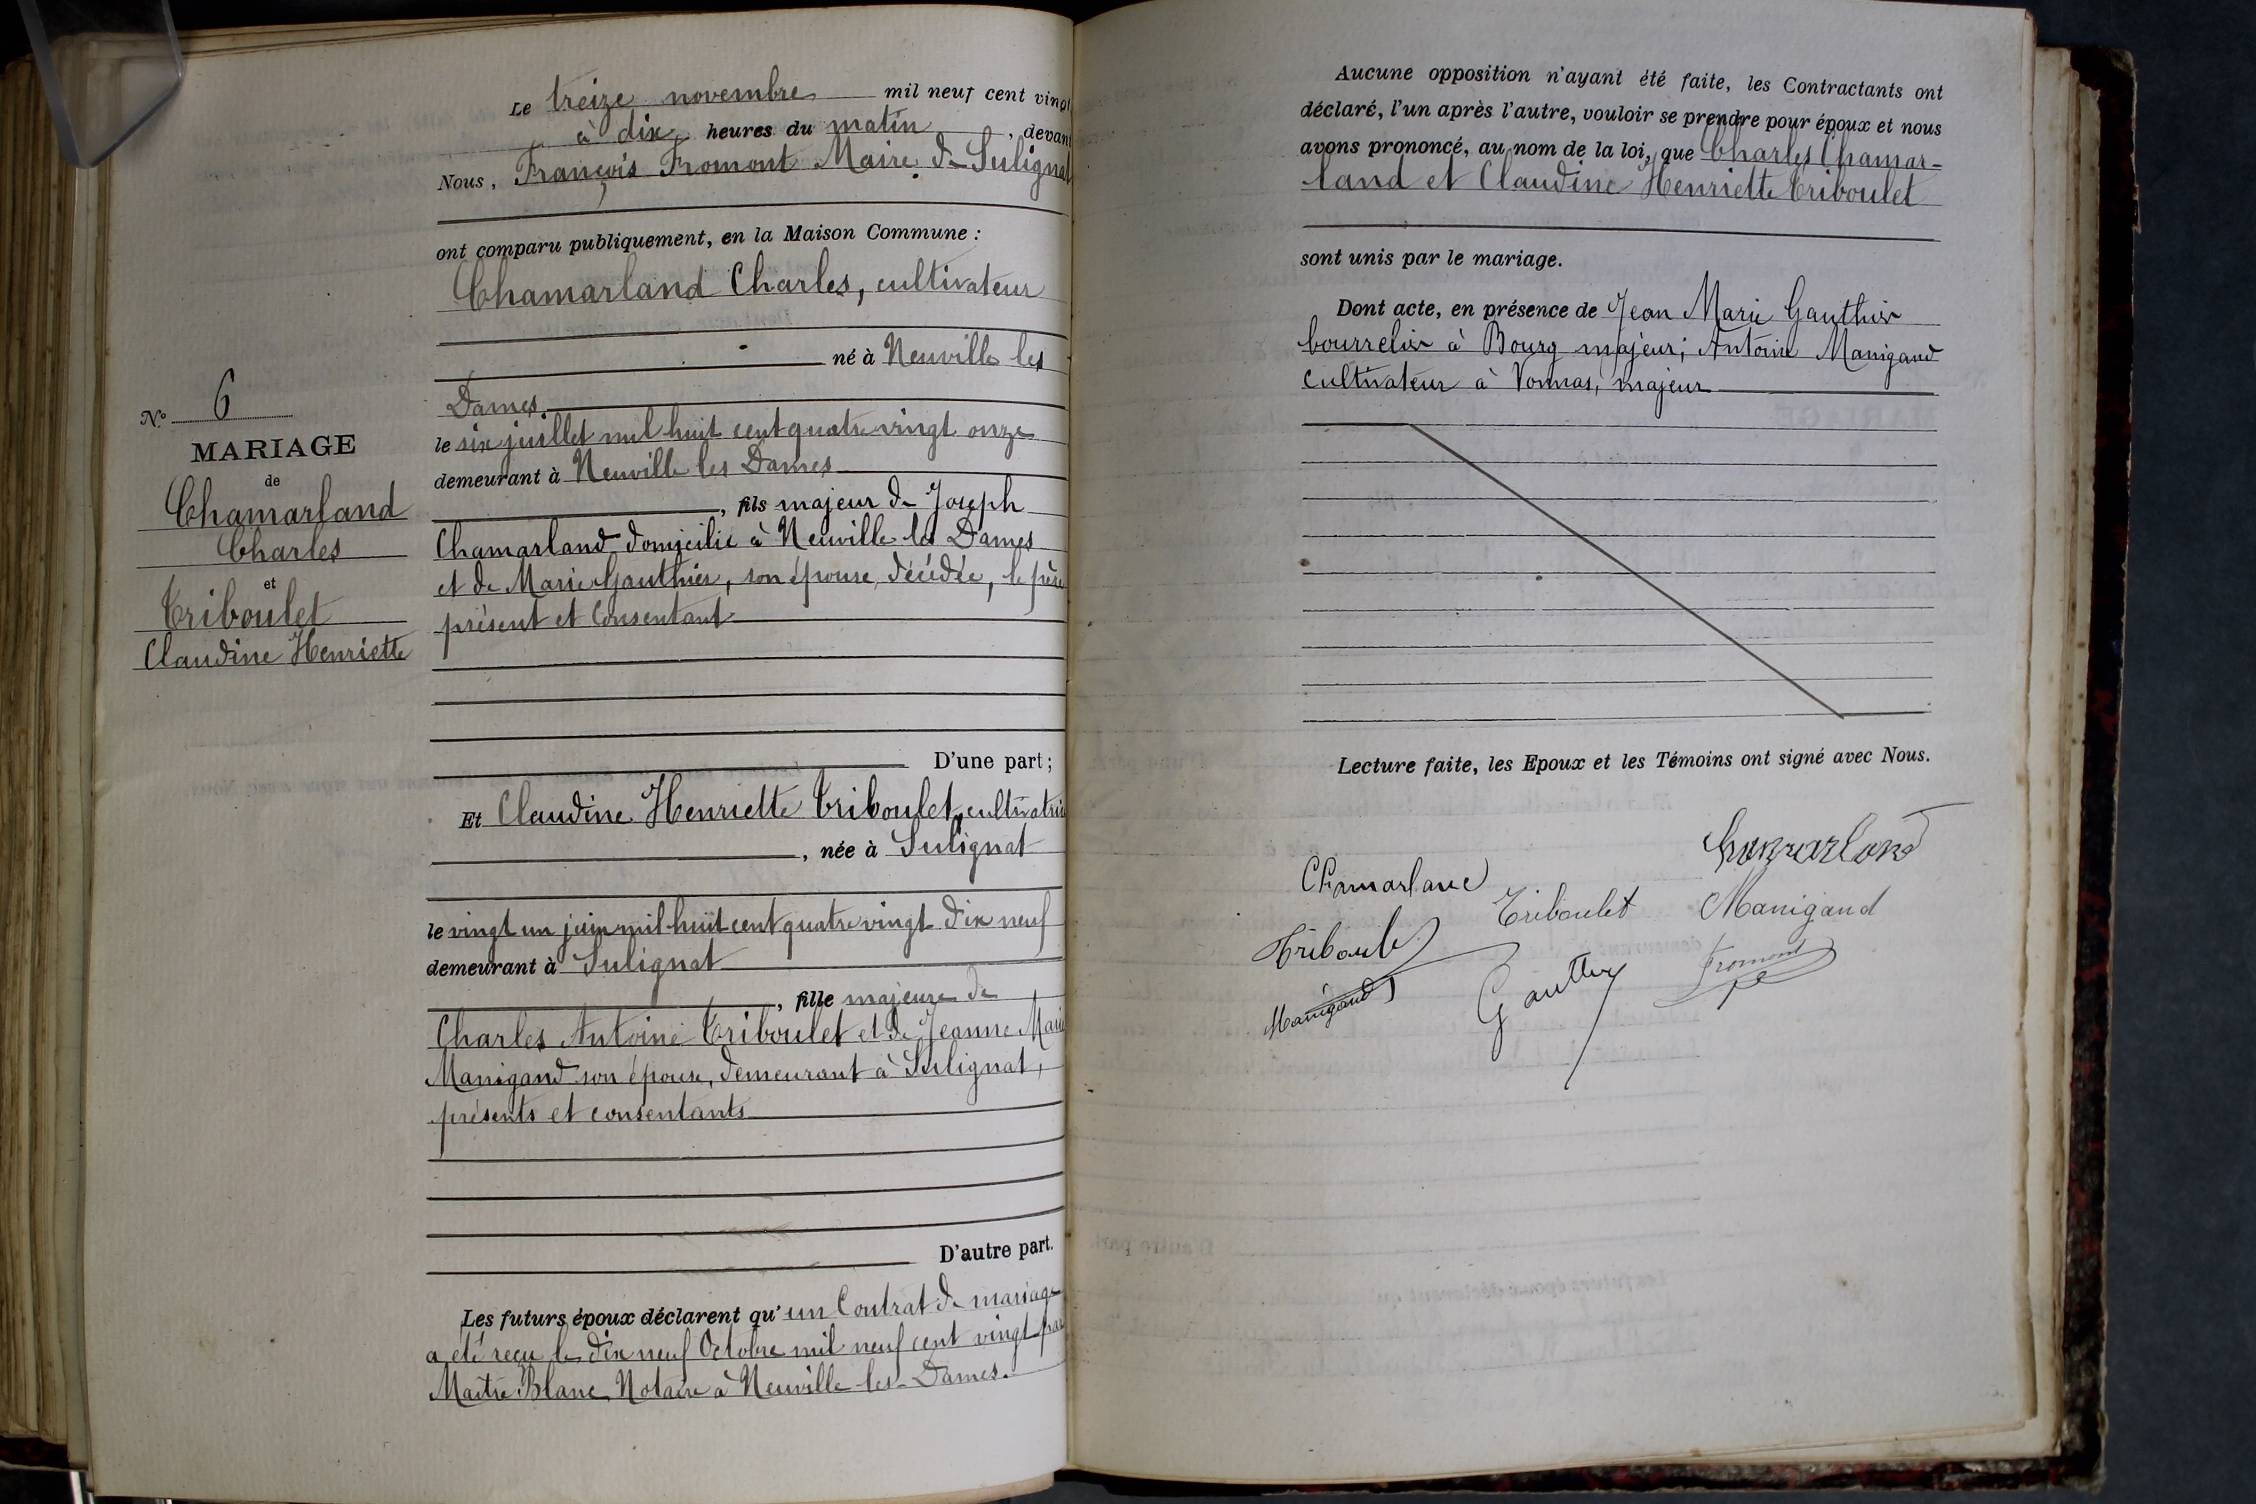 Le treize novembre mil neuf cent vingt
à dix heures du matin, devant
Nous, François Fromont Maire de Sulignat
ont comparu publiquement, en la Maison Commune :
Chamarland Charles, cultivateur
né à Neuville les
Dames
le six juillet mil huit cent quatre vingt onze
demeurant à Neuville les Dames
, fils majeur de Joseph
Chamarland domicilié à Neuville les Dames
et de Marie Gauthier, son épouse, décédée, le père
présent et consentant
D'une part ;
Et Claudine Henriette Triboulet, cultivatrice
, née à Sulignat
le vingt un juin mil huit cent quatre vingt dix neuf
demeurant à Sulignat
, fille majeure de
Charles Antoine Triboulet et de Jeanne Marie
Manigand son épouse, demeurant à Sulignat,
présents et consentants
D'autre part.
Les futurs époux déclarent qu'un Contrat de mariage
a été reçu le dix neuf Octobre mil neuf cent vingt par
Maître Blanc Notaire à Neuville-les-Dames.
N° 6
MARIAGE
de
Chamarland
Charles
et
Triboulet
Claudine Henriette
Aucune opposition n'ayant été faite, les Contractants ont
déclaré, l'un après l'autre, vouloir se prendre pour époux et nous
avons prononcé, au nom de la loi, que Charles Chamar-
land et Claudine Henriette Triboulet
sont unis par le mariage.
Dont acte, en présence de Jean Marie Gauthier
bourrelier à Bourg majeur; Antoine Manigand
cultivateur à Vonnas, majeur
Lecture faite, les Epoux et les Témoins ont signé avec Nous.
Chamarland
Chamarland
Triboulet
Manigand
Triboulet
Fromont
Gauthier
Manigand